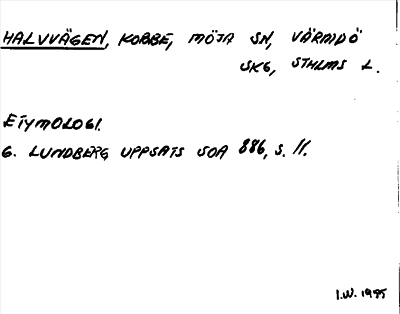 HALVVÄGEN, KOBBE, MÖJA SN, VÄRMDÖ
SKG, STHLMS L.
ETYMOLOGI.
G. LUNDBERG UPPSATS SOA 886, S. 11.
I.W. 1995